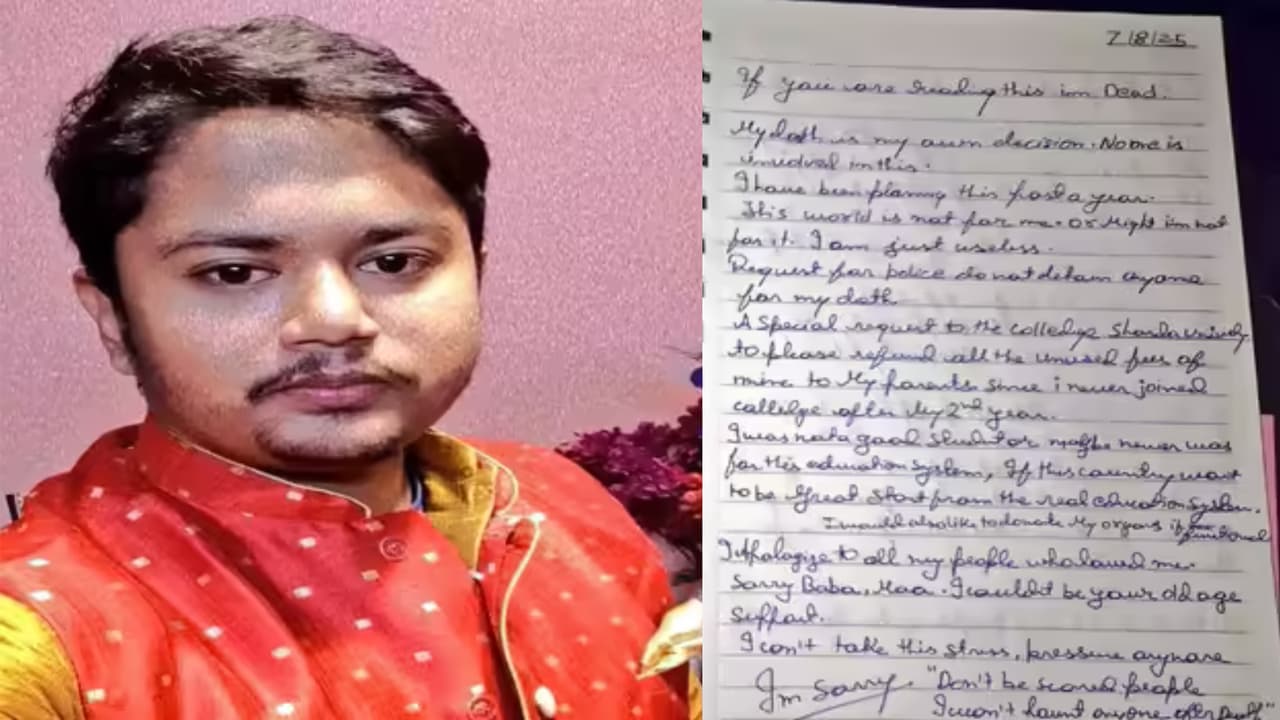 7/8/25
If you are reading this im Dead.
My dath is my own decision. No one is
involved in this.
I have been planing this past a year.
This world is not for me. Or Might im not
for it. I am just useless.
Request for police do not detain anyone
for my dath
A special request to the colledge Sharda
to please refund all the unused fees of
mine to My parents since i never joined
college after My 2nd year.
I was not a good student or maybe never was
for this education system, If this country want
to be great start from the real education system.
I would also like to donate My organs if functional
I Apologize to all my people who loved me.
Sorry Baba, Maa. I couldn't be your old age
support.
I can't take this stress, pressure anymore
Im Sorry. "Don't be scared people
I won't haunt anyone after Death"